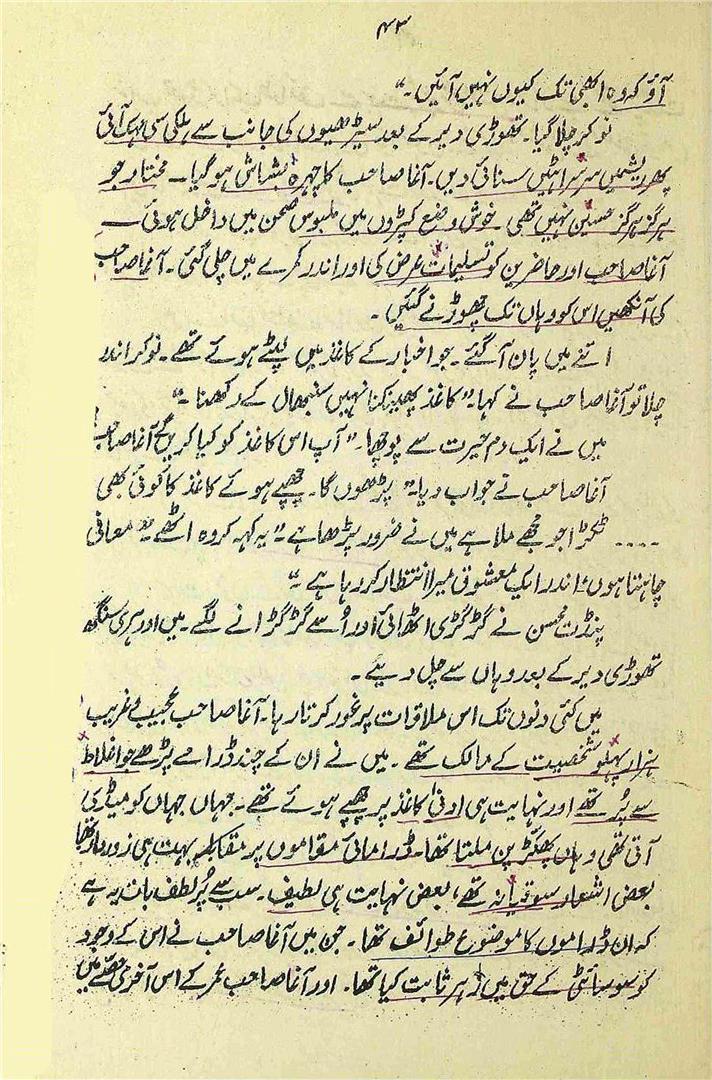 ۴۳
آؤ کہ وہ ابھی تک کیوں نہیں آئیں۔"
نوکر چلا گیا۔ تھوڑی دیر کے بعد سیڑھیوں کی جانب سے ہلکی سی مہک آئی
پھر ریشمیں سرسراہٹیں سنائی دیں۔ آغا صاحب کا چہرہ بشاش ہو گیا۔ مختار جو
ہرگز ہرگز حسین نہیں تھی۔ خوش وضع کپڑوں میں ملبوس صحن میں داخل ہوئی۔
آغا صاحب اور حاضرین کو تسلیمات عرض کی اور اندر کمرے میں چلی گئی۔ آغا صاحب
کی آنکھیں اس کو وہاں تک چھوڑنے گئیں۔
اتنے میں پان آ گئے۔ جو اخبار کے کاغذ میں لپٹے ہوئے تھے۔ نوکر اندر
چلا تو آغا صاحب نے کہا۔" کاغذ پھینکنا نہیں سنبھال کے رکھنا۔"
میں نے ایک دم حیرت سے پوچھا۔" آپ اس کاغذ کو کیا کریں گے آغا صاحب
آغا صاحب نے جواب دیا۔" پڑھوں گا۔ چھپے ہوئے کاغذ کا کوئی بھی
.... ٹکڑا جو مجھے ملا ہے میں نے ضرور پڑھا ہے۔" یہ کہہ کر وہ اٹھے۔" معافی
چاہتا ہوں، اندر ایک معشوق میرا انتظار کر رہا ہے۔"
پنڈت محسن نے گڑگڑی اٹھائی اور اُسے گڑگڑانے لگے۔ میں اور ہری سنگھ
تھوڑی دیر کے بعد وہاں سے چل دیئے۔
میں کئی دنوں تک اس ملاقات پر غور کرتا رہا۔ آغا صاحب عجیب و غریب
ہزار پہلو شخصیت کے مالک تھے۔ میں نے ان کے چند ڈرامے پڑھے جو اغلاط
سے پُر تھے اور نہایت ہی ادنیٰ کاغذ پر چھپے ہوئے تھے۔ جہاں جہاں کومیڈی
آتی تھی وہاں پھکڑ پن ملتا تھا۔ ڈرامائی مقاموں پر مقالمہ بہت ہی زوردار تھا
بعض اشعار سوقیانہ تھے، بعض نہایت ہی لطیف۔ سب سے پُر لطف بات یہ ہے
کہ ان ڈراموں کا موضوع طوائف تھا۔ جن میں آغا صاحب نے اس کے وجود
کو سوسائٹی کے حق میں زہر ثابت کیا تھا۔ اور آغا صاحب عمر کے اس آخری حصّے میں